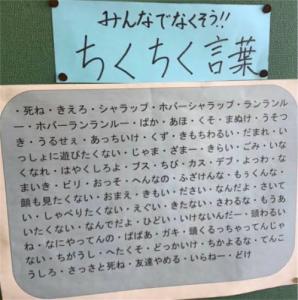 みんなでなくそう!!
ちくちく言葉
・死ね・きえろ・シャラップ・ホバーシャラップ・ランランル
ー・ホバーランランルー・ばか・あほ・くそ・まぬけ・うそつ
き・うるせぇ・あっちいけ・くず・きもちわるい・だまれ・い
っしょに遊びたくない・じゃま・ざまー・きらい・ごみ・いな
くなれ・はやくしろよ・ブス・ちび・カス・デブ・よっわ・な
まいき・ビリ・おっそ・へんなの・ふざけんな・もぅくんな・
顔も見たくない・おまえ・きもい・ださい・なんだよ・さいて
い・しゃべりたくない・えぐい・きたない・さわるな・もうあ
いたくない・なんでだよ・ひどい・いけないんだー・頭わるい
ね・なにやってんの・ばばあ・ガキ・頭くるっちゃってんじゃ
ない・ちがうし・へたくそ・どっかいけ・ちかよるな・てんこ
うしろ・さっさと死ね・友達やめる・いらねー・どけ